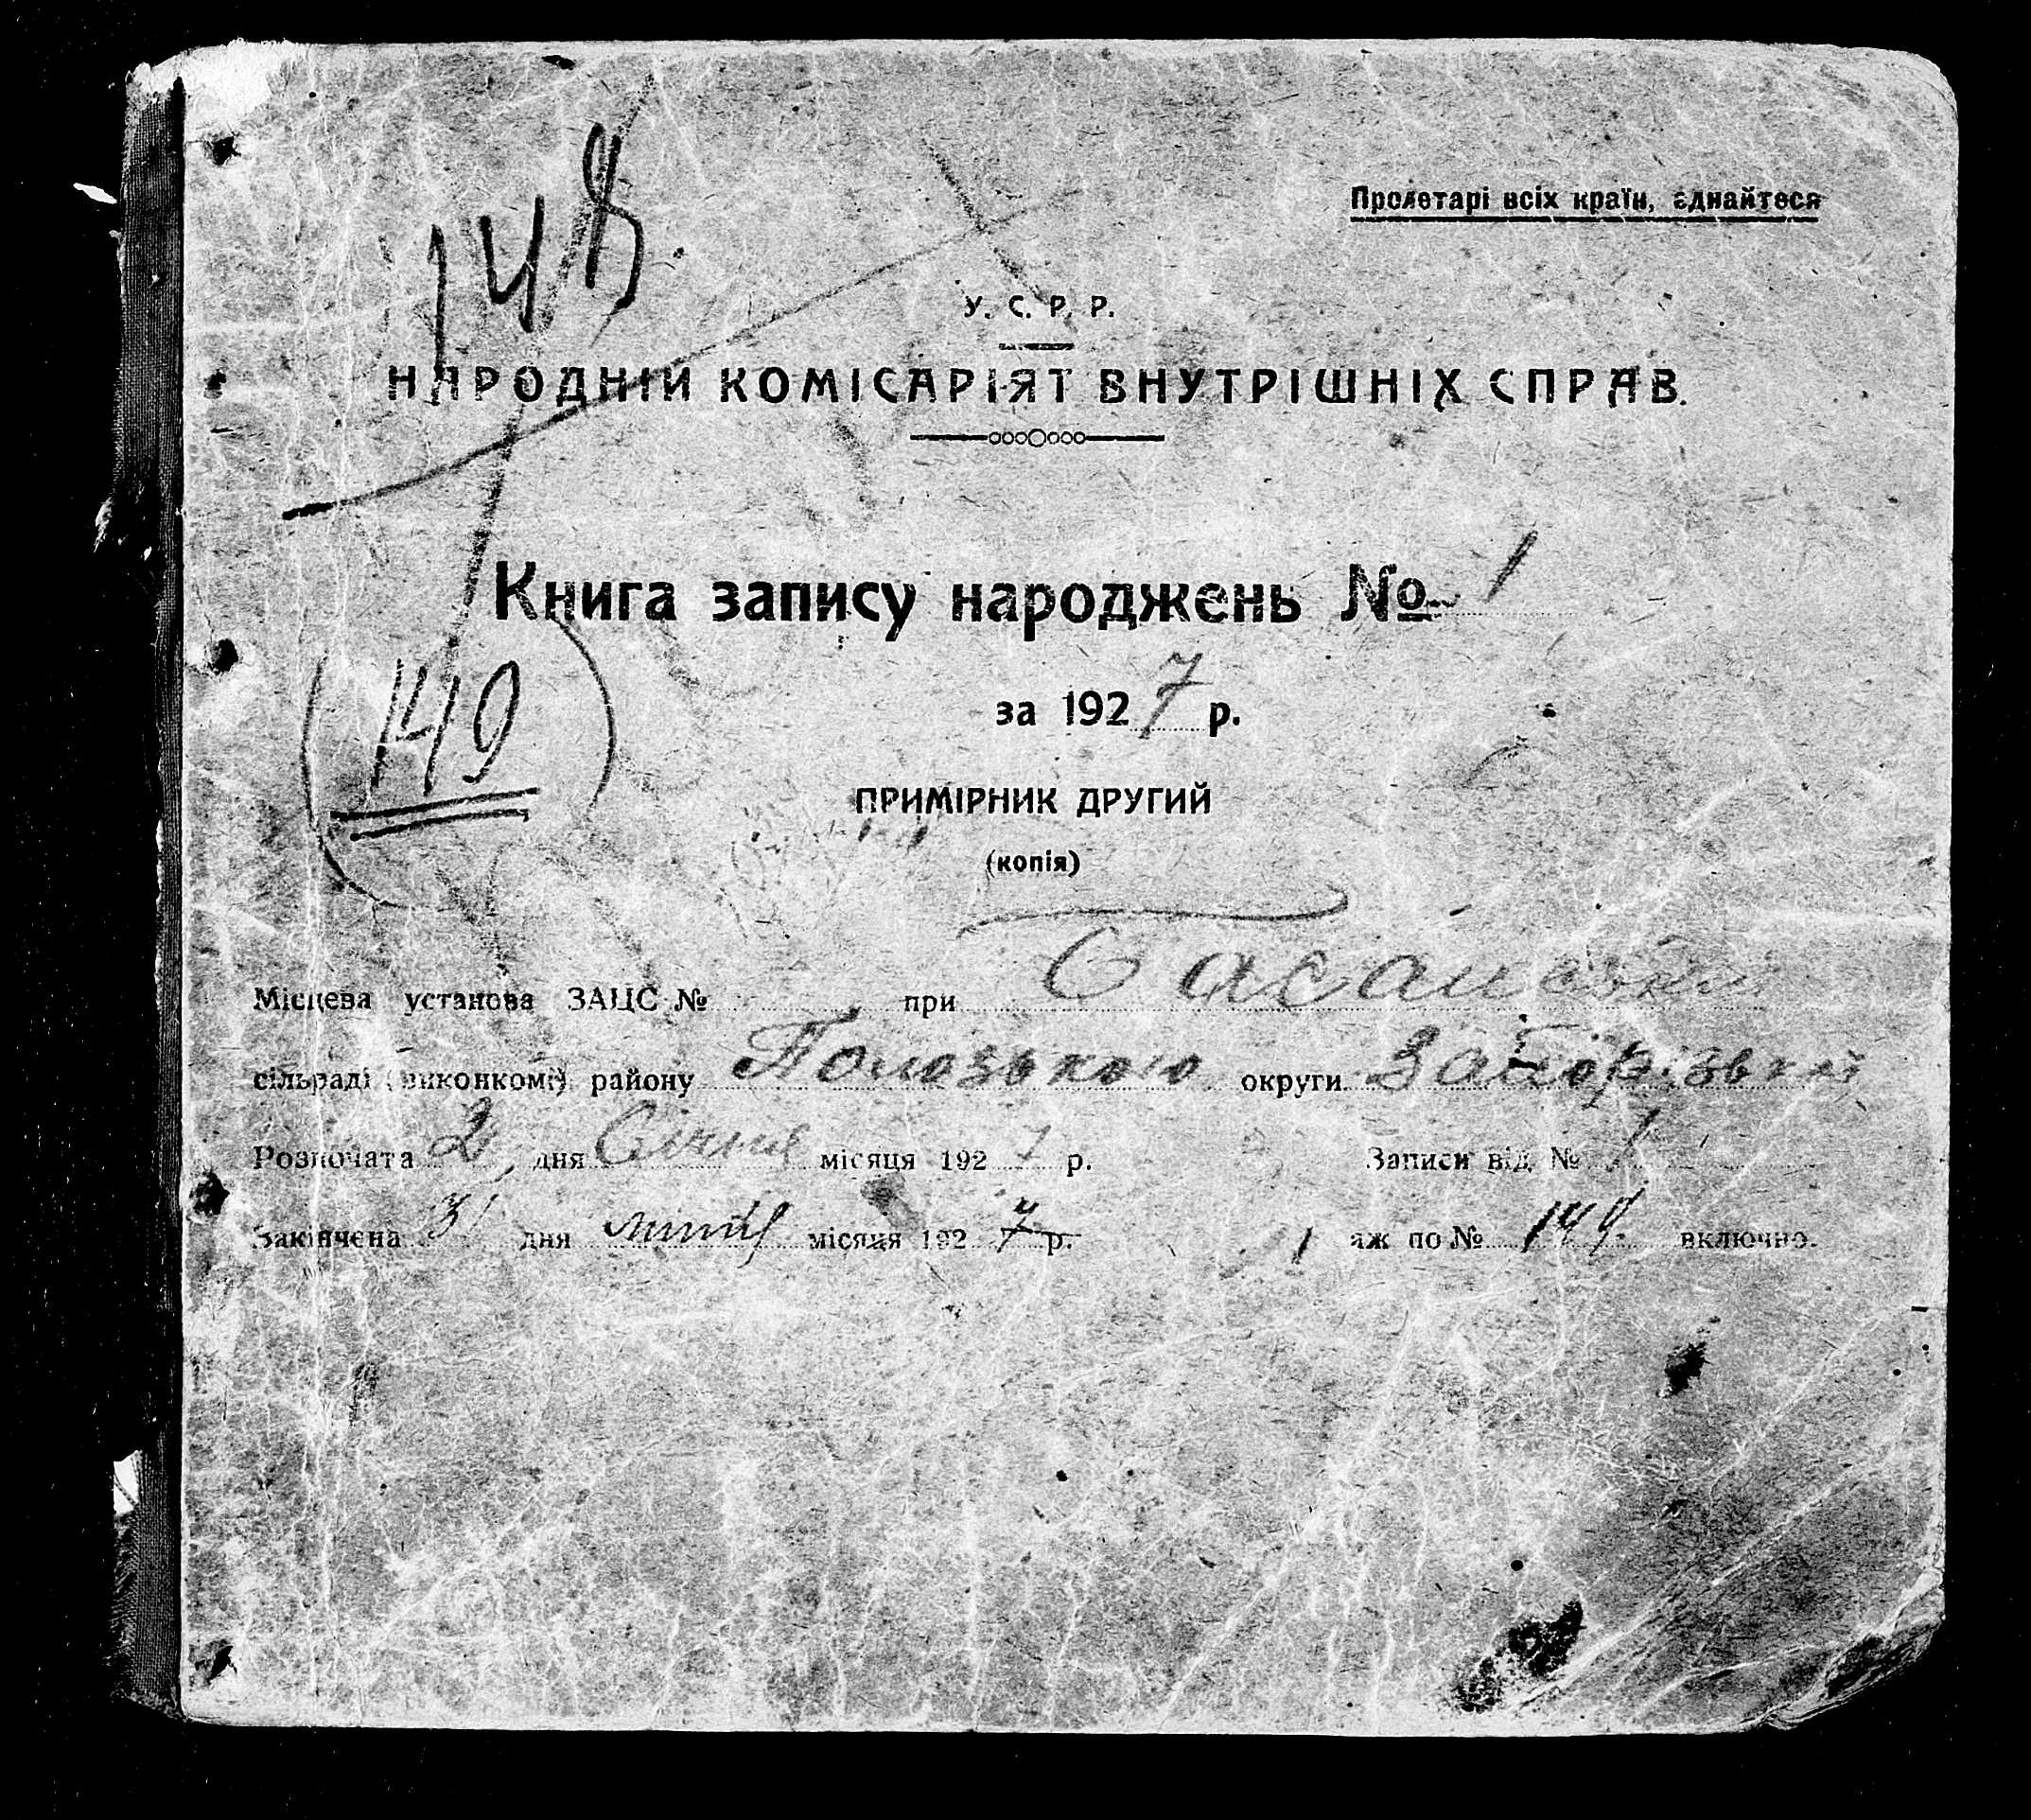 148
Пролетарі всіх країн, єднайтеся
У. С. Р. Р.
НАРОДНІЙ КОМІСАРІЯТ ВНУТРІШНІХ СПРАВ.
Книга запису народжень № 1
149
за 1927 р.
ПРИМІРНИК ДРУГИЙ
(копія)
Місцева установа ЗАЦС № при
сільраді (виконкомі) району Полозького округи Запорізької
Розпочата 2 дня Січня місяця 1927 р. Записи від № 1
Закінчена 31 дня липня місяця 1927 р. аж по № 149 включно.